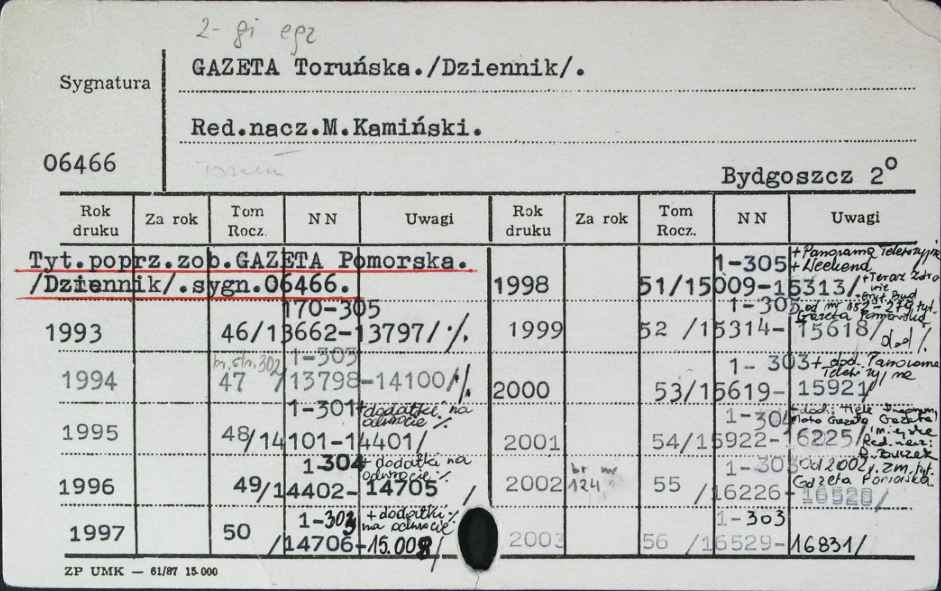 2-gi egz
GAZETA Toruńska./Dziennik/.
Sygnatura
Red.nacz.M.Kamiński.
06466
Bydgoszcz 2º
Rok druku | Za rok | Tom Rocz. | N N | Uwagi | Rok druku | Za rok | Tom Rocz. | N N | Uwagi
Tyt.poprz.zob.GAZETA Pomorska.
/Dziennik/.sygn.06466.
1993 46/13662-13797/ %. 170-305
1994 br. str. 302 47 /13798-14100/ %. 1-303
1995 48/14101-14401/ 1-301 + dodatki na odwrocie %
1996 49/14402-14705 / 1-304 + dodatki na odwrocie %
1997 50 /14706-15.008/ 1-303 + dodatki % na odwrocie
1998 51/15009-15313/ 1-305 + Panorama Telewizyjna + Weekend + Teraz Zdrowie
1999 52 /15314-15618/ 1-305 od nr 252-279 tyt. Gazeta Pomorska dod %.
2000 53/15619-15921/ 1-303 + dod. Panorama Telewizyjna
2001 54/15922-16225/ 1-304 + dod. Gazeta Red. nacz.
2002 br nr 124 55 /16226-16528/ 1-303 Od 2002 r. zm. tyt. Gazeta Pomorska
2003 56 /16529-16831/ 1-303
ZP UMK — 61/87 15.000